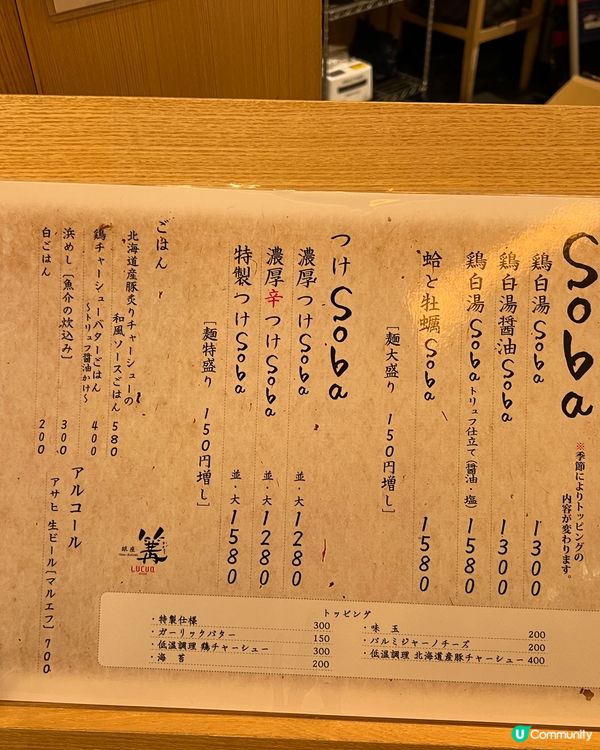 Soba
※季節によりトッピングの
内容が変わります。
鶏白湯 Soba 1300
鶏白湯醤油 Soba 1300
鶏白湯 Soba トリュフ仕立て(醤油 塩) 1580
蛤と牡蠣 Soba 1580
[麺大盛り 150円増し]
つけ Soba
濃厚つけ Soba 並・大 1280
濃厚辛つけ Soba 並・大 1280
特製つけ Soba 並・大 1580
[麺特盛り 150円増し]
ごはん
北海道産豚炙りチャーシューの
和風ソースごはん 580
鶏チャーシューバターごはん 400
〜トリュフ醤油かけ〜
浜めし[魚介の炊込み] 300
白ごはん 200
アルコール
アサヒ 生ビール[マルエフ] 700
銀座
篝
LUCUA
トッピング
・特製仕様 300
・ガーリックバター 150
・低温調理 鶏チャーシュー 300
・海苔 200
・味玉 200
・パルミジャーノチーズ 200
・低温調理 北海道産豚チャーシュー 400
U Community